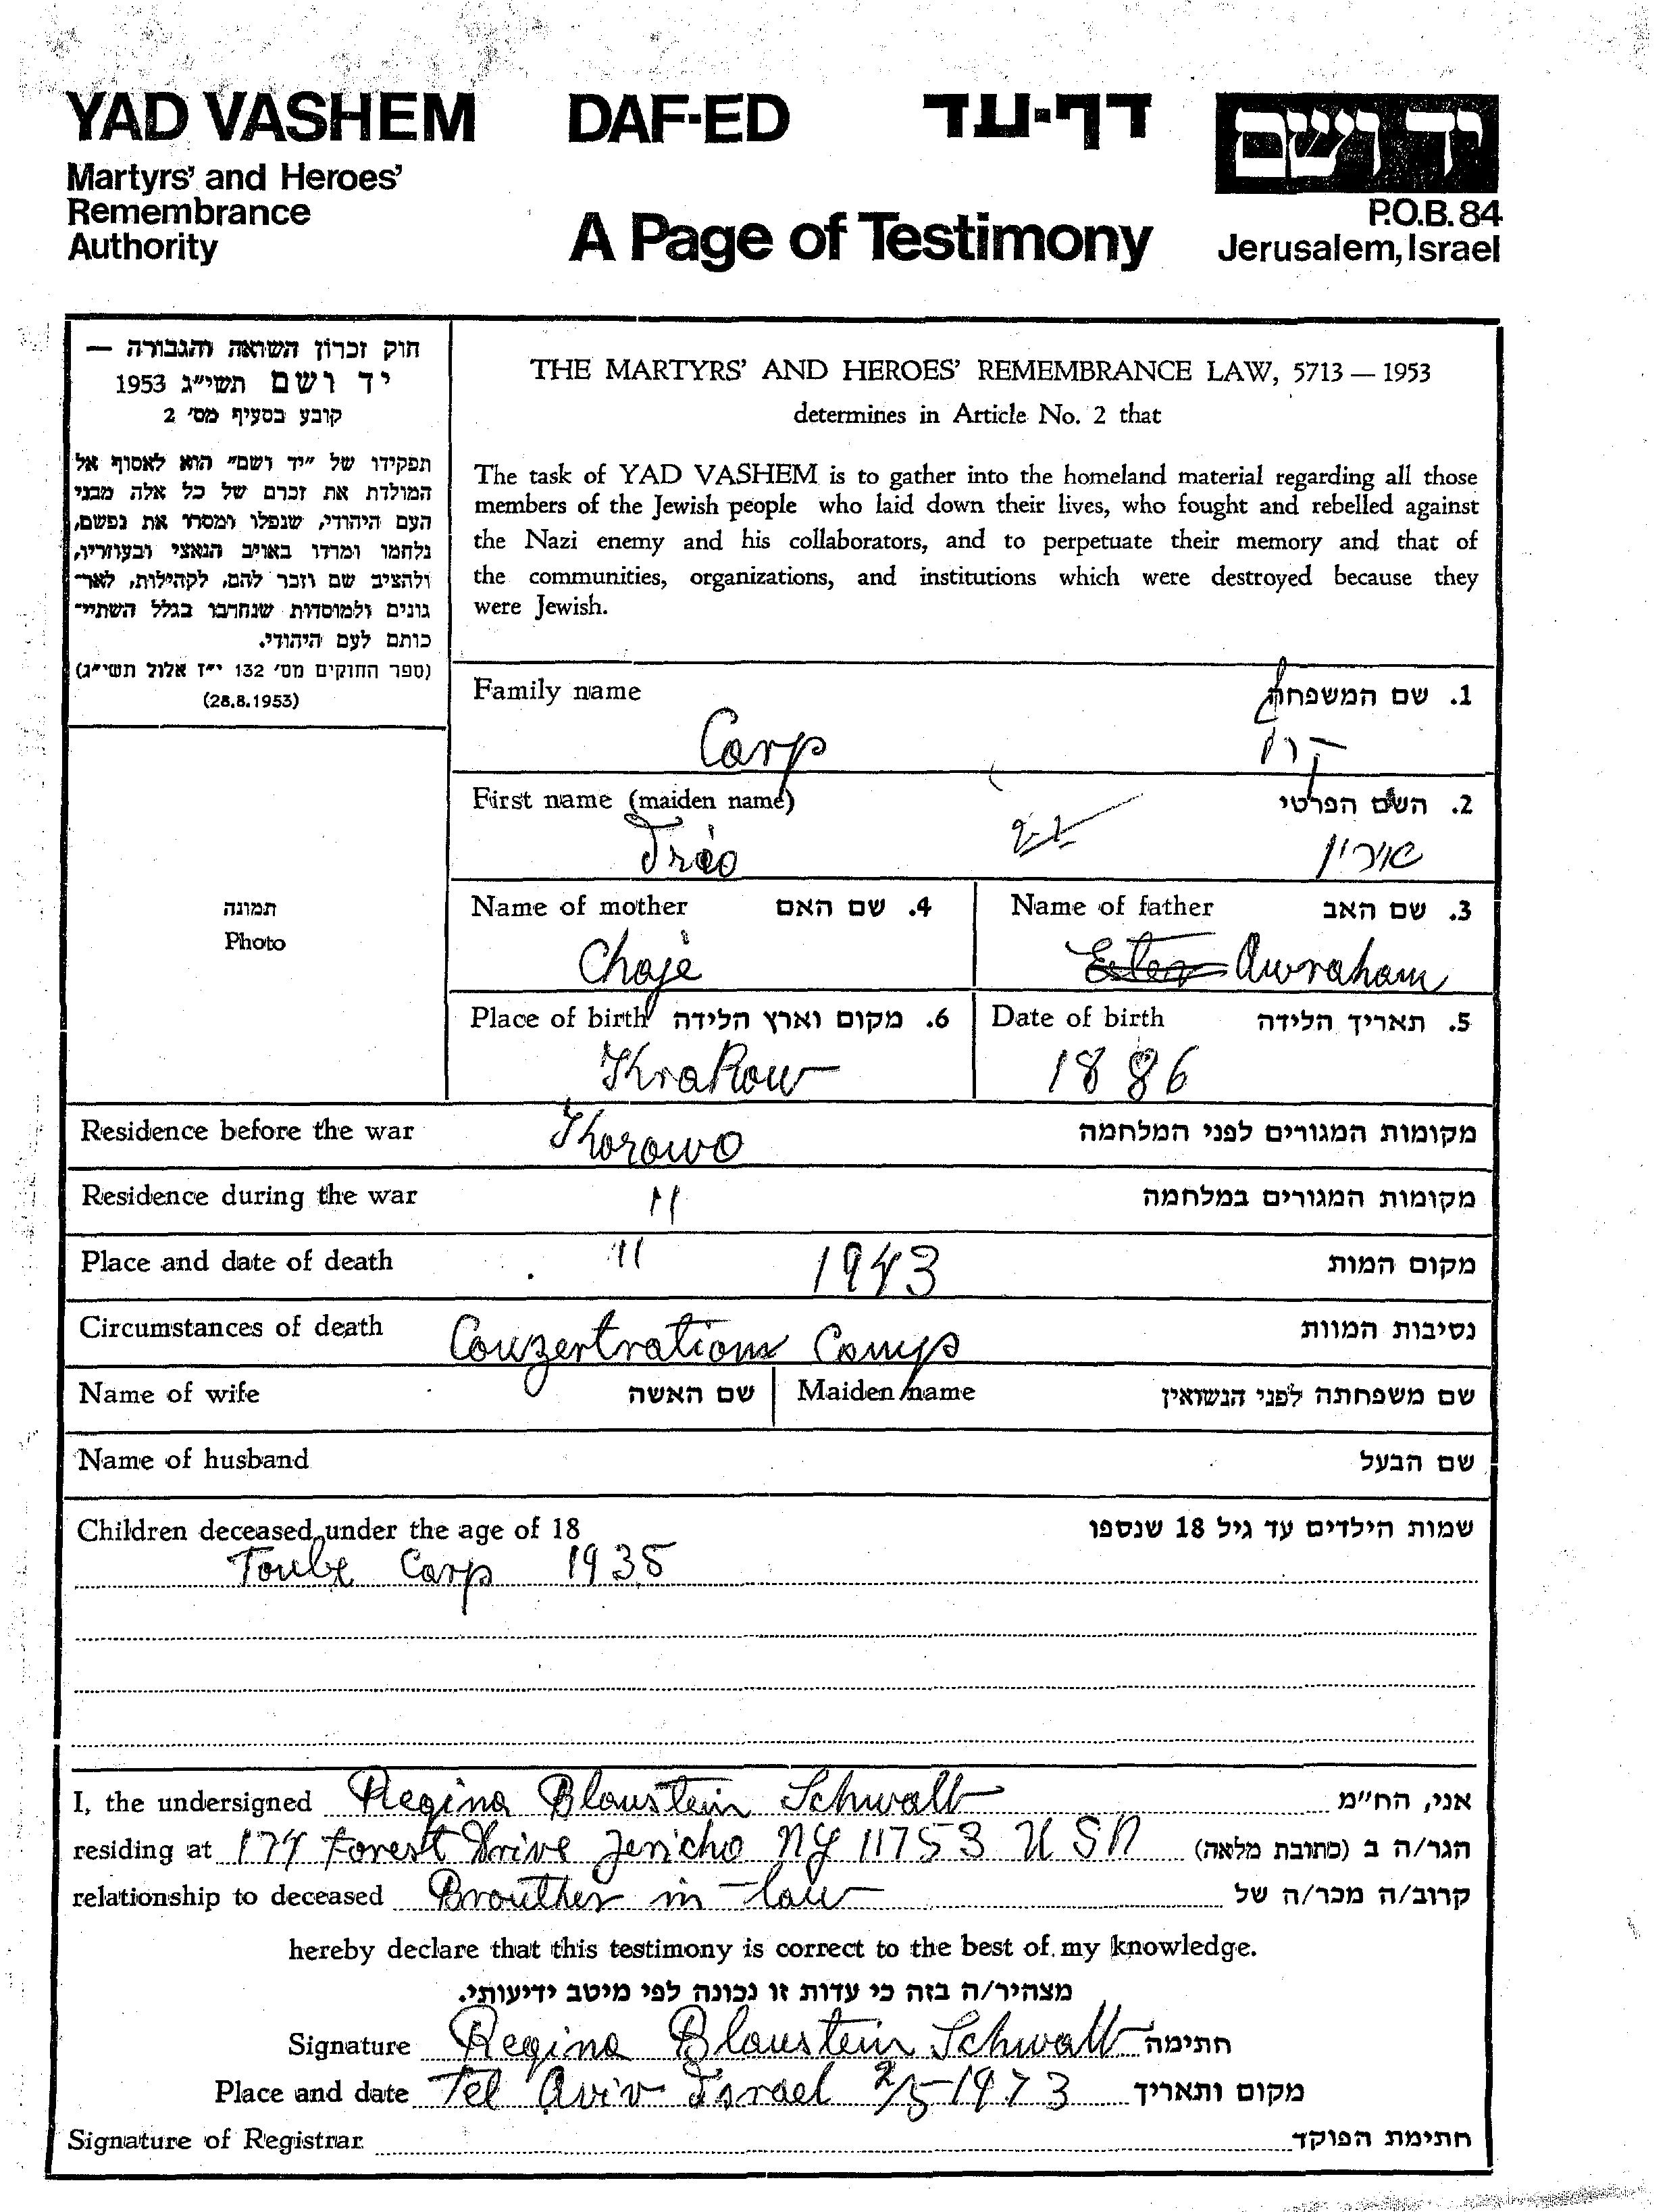 YAD VASHEM DAF-ED דף-עד יד ושם
Martyrs' and Heroes'
Remembrance
Authority
A Page of Testimony
P.O.B. 84
Jerusalem, Israel
חוק זכרון השואה והגבורה —
יד ושם תשי"ג 1953
קובע בסעיף מס' 2
תפקידו של "יד ושם" הוא לאסוף אל
המולדת את זכרם של כל אלה מבני
העם היהודי, שנפלו ומסרו את נפשם,
נלחמו ומרדו באויב הנאצי ובעוזריו,
ולהציב שם וזכר להם, לקהילות, לאר־
גונים ולמוסדות שנחרבו בגלל השתיי־
כותם לעם היהודי.
(ספר החוקים מס' 132 י"ז אלול תשי"ג)
(28.8.1953)
THE MARTYRS' AND HEROES' REMEMBRANCE LAW, 5713 — 1953
determines in Article No. 2 that
The task of YAD VASHEM is to gather into the homeland material regarding all those
members of the Jewish people who laid down their lives, who fought and rebelled against
the Nazi enemy and his collaborators, and to perpetuate their memory and that of
the communities, organizations, and institutions which were destroyed because they
were Jewish.
תמונה
Photo
Family name 1. שם המשפחה
Carp
First name (maiden name) 2. השם הפרטי
Name of mother 4. שם האם
Chaje
Name of father 3. שם האב
Ester Awraham
Place of birth 6. מקום וארץ הלידה
Krakow
Date of birth 5. תאריך הלידה
1886
Residence before the war מקומות המגורים לפני המלחמה
Residence during the war 11 מקומות המגורים במלחמה
Place and date of death 11 1943 מקום המות
Circumstances of death Conzertration Camp נסיבות המוות
Name of wife שם האשה Maiden name שם משפחתה לפני הנשואין
Name of husband שם הבעל
Children deceased under the age of 18 שמות הילדים עד גיל 18 שנספו
Toube Carp 1935
I, the undersigned Regina Blaustein Schwalb אני, הח"מ
residing at 174 Forest Drive Jericho NY 11753 USA הגר/ה ב (כתובת מלאה)
relationship to deceased Brouther in-law קרוב/ה מכר/ה של
hereby declare that this testimony is correct to the best of my knowledge.
מצהיר/ה בזה כי עדות זו נכונה לפי מיטב ידיעותי.
Signature Regina Blaustein Schwalb חתימה
Place and date Tel Aviv Israel 2/5-1973 מקום ותאריך
Signature of Registrar חתימת הפוקד